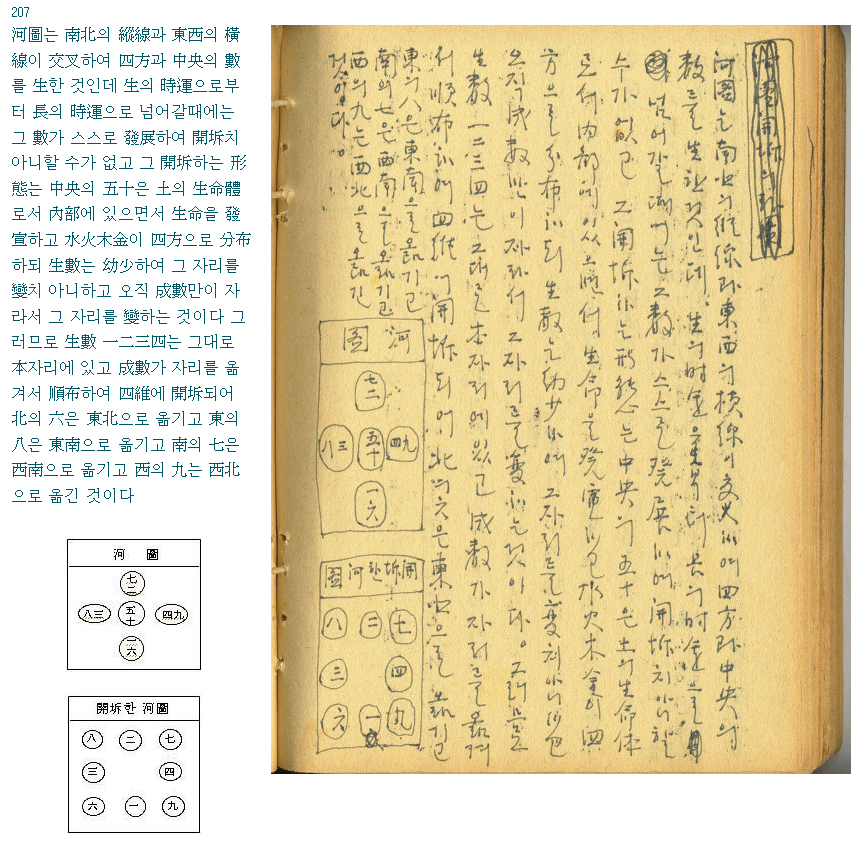 207
河圖는 南北의 縱線과 東西의 橫
線이 交叉하여 四方과 中央의 數
를 生한 것인데 生의 時運으로부
터 長의 時運으로 넘어갈때에는
그 數가 스스로 發展하여 開坼치
아니할 수가 없고 그 開坼하는 形
態는 中央의 五十은 土의 生命體
로서 內部에 있으면서 生命을 發
宣하고 水火木金이 四方으로 分布
하되 生數는 幼少하여 그 자리를
變치 아니하고 오직 成數만이 자
라서 그 자리를 變하는 것이다 그
러므로 生數 一二三四는 그대로
本자리에 있고 成數가 자리를 옮
겨서 順布하여 四維에 開坼되어
北의 六은 東北으로 옮기고 東의
八은 東南으로 옮기고 南의 七은
西南으로 옮기고 西의 九는 西北
으로 옮긴 것이다
河 圖
七二
八三 五十 四九
一六
開坼한 河圖
八 二 七
三 四
六 一 九
河圖開坼의
河圖는 南北의 縱線과 東西의 橫線이 交叉하여 四方과 中央의
數를 生한 것인데 生의 時運으로부터 長의 時運으로
넘어갈때에는 그 數가 스스로 發展하여 開坼치 아니할
수가 없고 그 開坼하는 形態는 中央의 五十은 土의 生命体
로서 內部에 있으면서 生命을 發宣하고 水火木金이 四
方으로 分布하되 生數는 幼少하여 그 자리를 變치 아니하고
오직 成數만이 자라서 그 자리를 變하는 것이다. 그러므로
生數 一二三四는 그대로 本자리에 있고 成數가 자리를 옮겨
서 順布하여 四維에 開坼되어 北의 六은 東北으로 옮기고
東의 八은 東南으로 옮기고
南의 七은 西南으로 옮기고
西의 九는 西北으로 옮긴
것이다.
河 圖
七二
八三 五十 四九
一六
開坼한 河圖
八 二 七
三 四
六 一 九